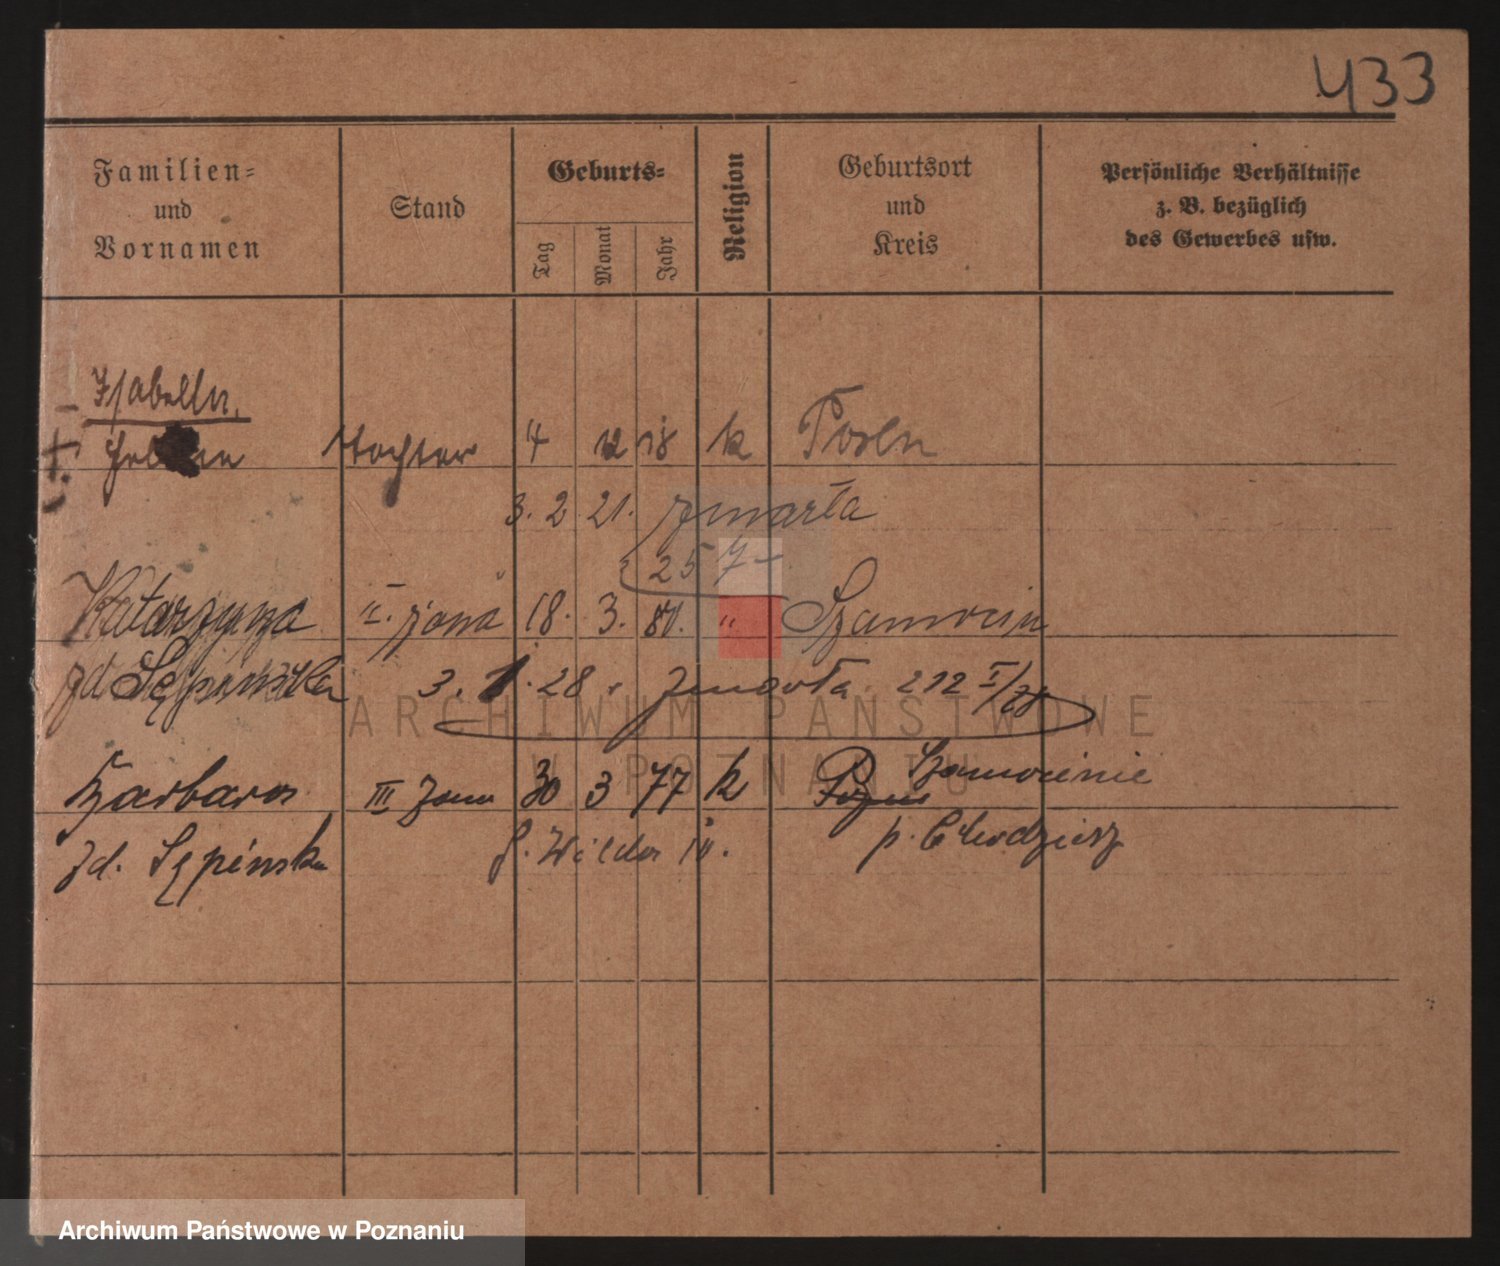 433
Familien=
und
Vornamen
Stand
Geburts=
Tag
Monat
Jahr
Religion
Geburtsort
und
Kreis
Persönliche Verhältnisse
z. B. bezüglich
des Gewerbes usw.
Isabella
Tochter 4 12 18 k Posen
3. 2 21. zmarła
257
Katarzyna II. żona 18. 3. 80. " Szamocin
zd Sępińska 3. 1. 28. zmarła 212 I/28
Barbara III żona 30 3 77 k Szamocinie
zd. Sępińska p. Chodzież
ARCHIWUM PAŃSTWOWE
W POZNANIU
Archiwum Państwowe w Poznaniu